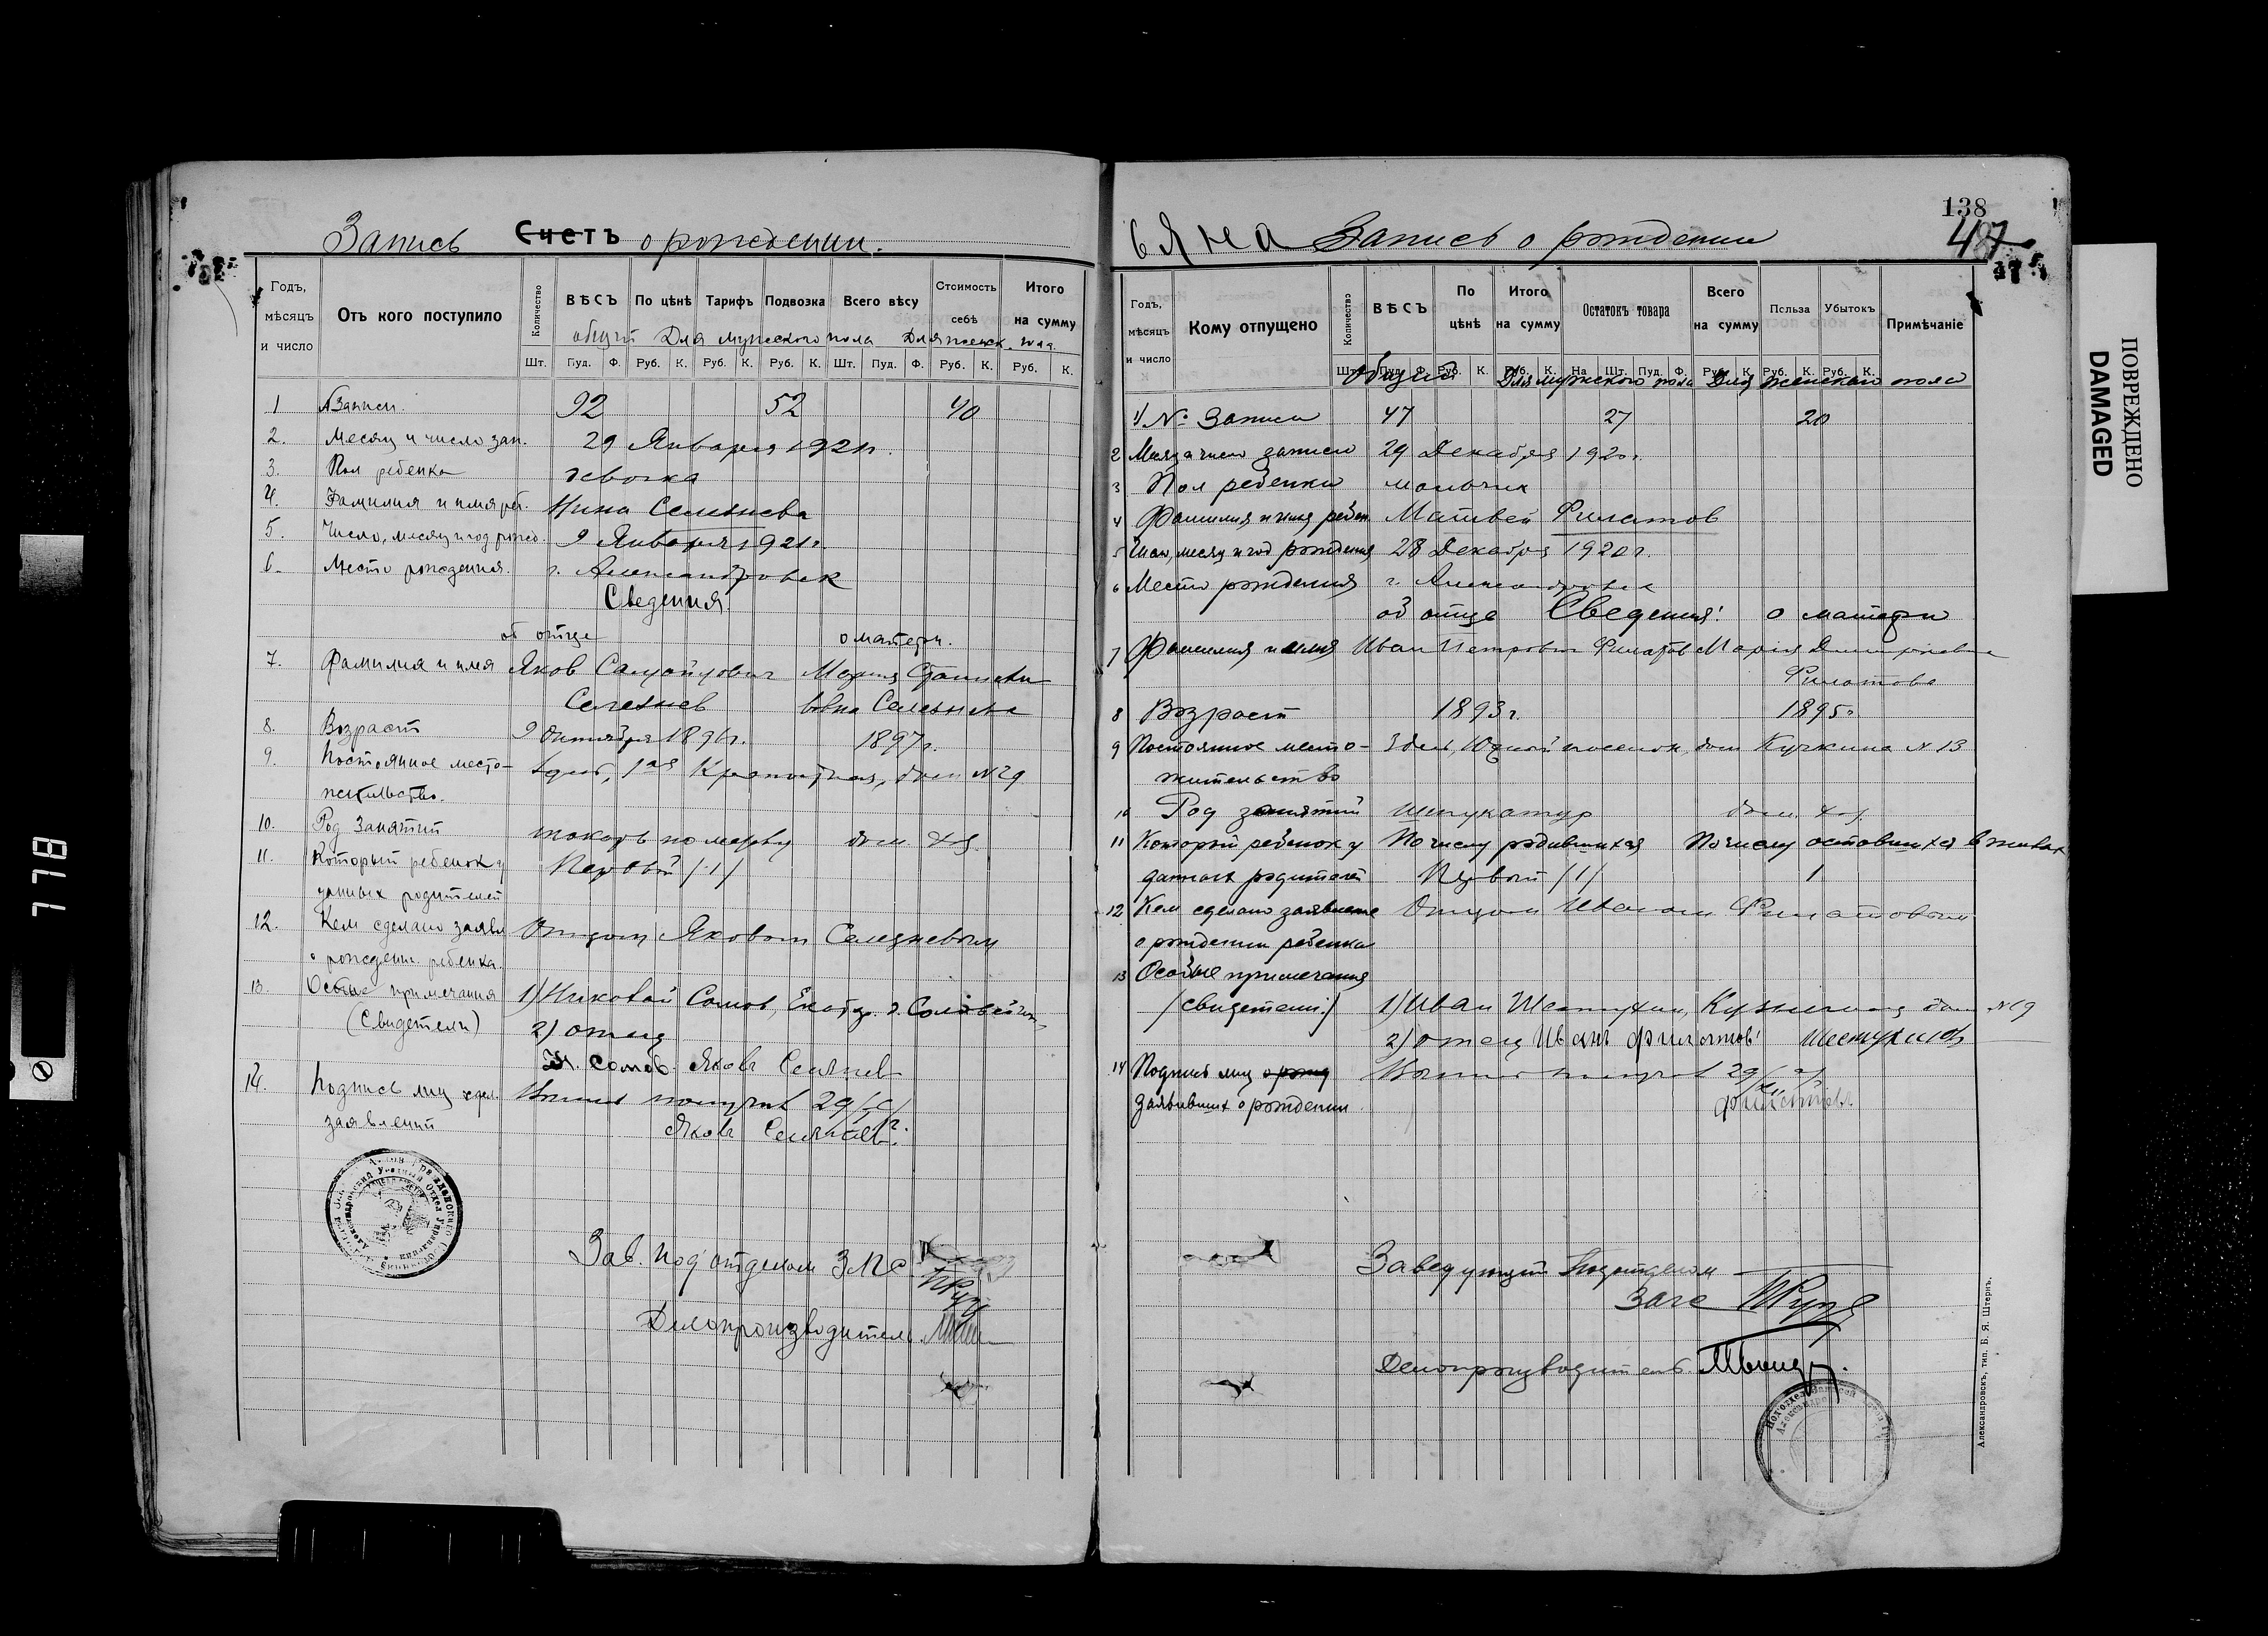 Запись Счетъ о рождении.
Годъ, мѣсяцъ и число
Отъ кого поступило
Количество
ВѢСЪ
По цѣнѣ
Тарифъ
Подвозка
Всего вѣсу
Стоимость себѣ
Итого на сумму
общий Для мужского пола Для женск. пола
Шт. Пуд. Ф. Руб. К. Руб. К. Руб. К. Шт. Пуд. Ф. Руб. К. Руб. К.
1 № Записи. 92 52 40
2. Месяц и число зап. 29 Января 1921г.
3. Пол ребенка девочка
4. Фамилия и имя реб. Нина Селезнева
5. Число, месяц и год рожд. 9 Января 1921г.
6. Место рождения. г. Александровск
Сведения
об отце о матери.
7. Фамилия и имя Яков Самойлович Мария
Селезнев Селезнева
8. Возраст 9 Октября 1896г. 1897г.
9. Постоянное место- 1ая Крепостная, дом № 29
жительство.
10. Род Занятий токарь по дом. хоз.
11. Который ребенок у Первый /1/
данных родителей
12. Кем сделано заявл Отцом Яковом Селезневым
о рожден. ребенка.
13. Особые примечания 1) Сомов,
(Свидетели) 2) отец
Сомов. Яковъ Селезнев
14. Подпись лиц сдел. 29/
заявлений Яковъ
Зав. Подотделом ЗАГС
Делопроизводитель
138
47
47
Запись о рождении
Годъ, мѣсяцъ и число
Кому отпущено
Количество
ВѢСЪ
По цѣнѣ
Итого на сумму
Остатокъ товара
Всего на сумму
Польза
Убытокъ
Примѣчаніе
Шт. Пуд. Ф. Руб. К. Руб. К. На Шт. Пуд. Ф. Руб. К. Руб. К. Руб. К.
Общий Для мужского пола Для женского пола
1) № Записи 47 27 20
2 Месяц и число записи 29 Декабря 1920г.
3 Пол ребенка мальчик
4 Фамилия и имя ребен. Матвей Филатов
5 Число, месяц и год рождения 28 Декабря 1920г.
6 Место рождения г. Александровск
об отце Сведения: о матери
7 Фамилия и имя Иван Петрович Филатов Мария Дмитриевна
Филатова
8 Возраст 1893г. 1895г
9 Постоянное место- Южной поселок, дом Кучкина № 13
жительство
10 Род занятий Штукатур дом. хоз.
11 Который ребенок у По числу родившихся По числу оставшихся в живых
данных родителей Первый /1/ 1
12 Кем сделано заявление Отцом Иваном Филатовым
о рождении ребенка
13 Особые примечания
/свидетели:/ 1) Иван Шестухин, дом № 19
2) отец Иванъ Филатовъ Шестухинъ
14 Подпись лиц 29/
заявивших о рождении
Заведующий Подотделом
Загс
Делопроизводитель
Александровскъ, тип. Б. Я. Штернъ.
ПОВРЕЖДЕНО
DAMAGED
778